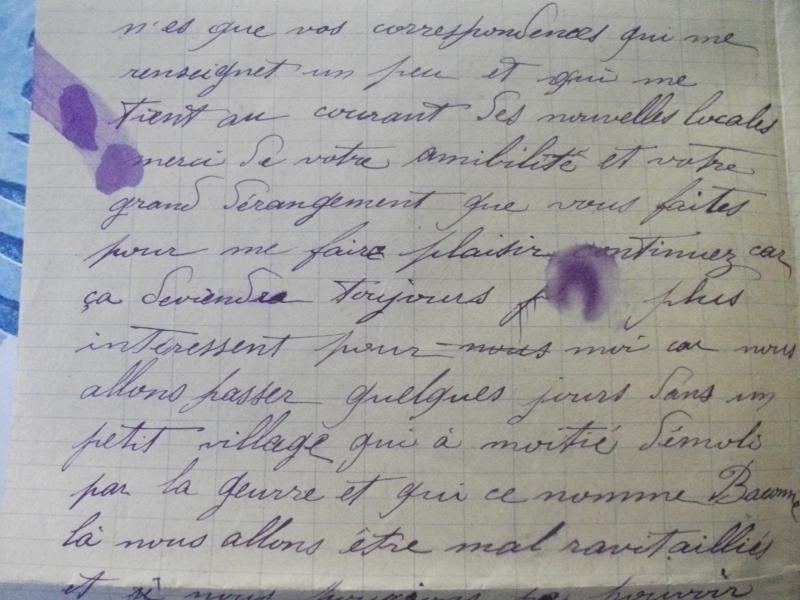 n'es que vos correspondences qui me
renseignet un peu et qui me
tient au courant des nouvelles locales
merci de votre amibilité et votre
grand dérangement que vous faites
pour me faire plaisir continuez car
ça deviendra toujours plus
interessent pour nous moi car nous
allons passer quelques jours dans un
petit village qui à moitié démoli
par la geurre et qui ce nomme Baconne
là nous allons être mal ravitailliés
et si nous pouvoir